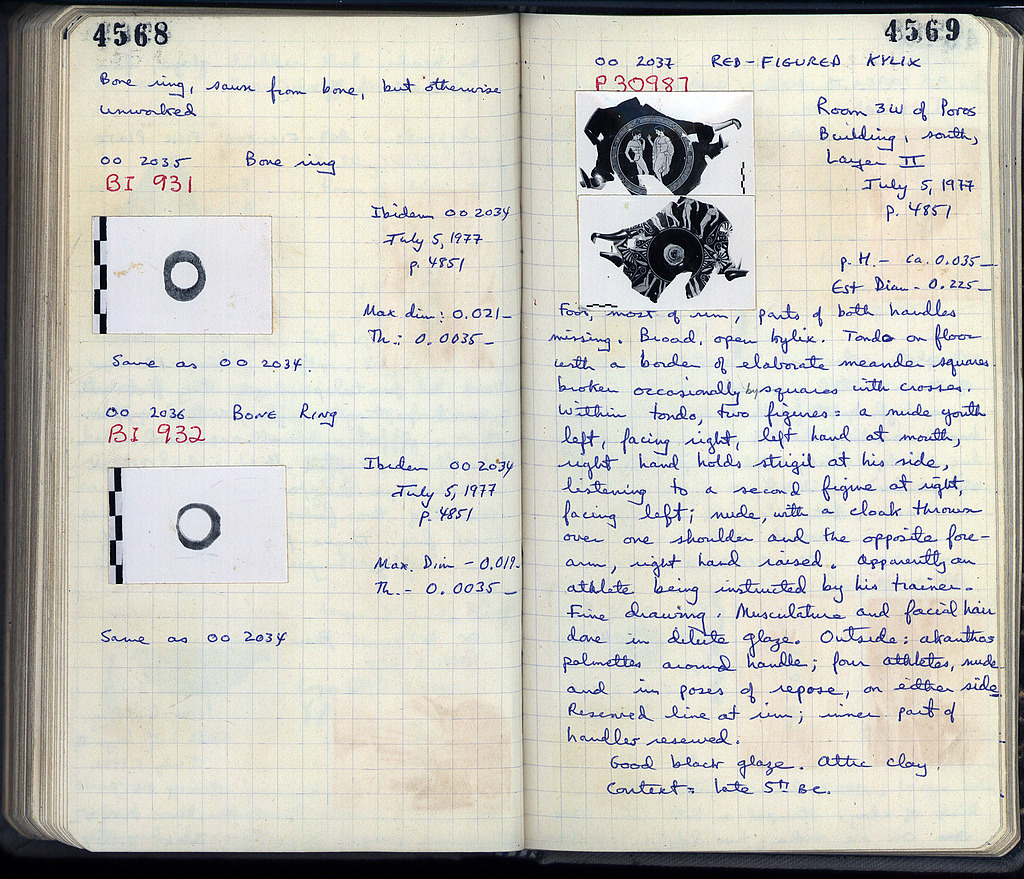 4568
Bone ring, sawn from bone, but otherwise
unworked
OO 2035 Bone ring
BI 931
Ibidem OO 2034
July 5, 1977
p. 4851
Max dim: 0.021-
Th.: 0.0035-
Same as OO 2034.
OO 2036 BONE RING
BI 932
Ibidem OO 2034
July 5, 1977
p. 4851
Max. Dim - 0.019-
Th. - 0.0035-
Same as OO 2034
4569
OO 2037 RED-FIGURED KYLIX
P 30987
Room 3W of Poros
Building, south,
Layer II
July 5, 1977
p. 4851
p. H. - ca. 0.035-
Est Diam - 0.225-
Foot, most of rim, parts of both handles
missing. Broad, open kylix. Tondo on floor
with a border of elaborate meander squares
broken occasionally by squares with crosses.
Within tondo, two figures: a nude youth
left, facing right, left hand at mouth,
right hand holds strigil at his side,
listening to a second figure at right,
facing left; nude, with a cloak thrown
over one shoulder and the opposite fore-
arm, right hand raised. Apparently an
athlete being instructed by his trainer.
Fine drawing. Musculature and facial hair
done in dilute glaze. Outside: akanthos
palmettes around handle; four athletes, nude
and in poses of repose, on either side.
Reserved line at rim; inner part of
handles reserved.
Good black glaze. Attic clay.
Context: late 5th BC.